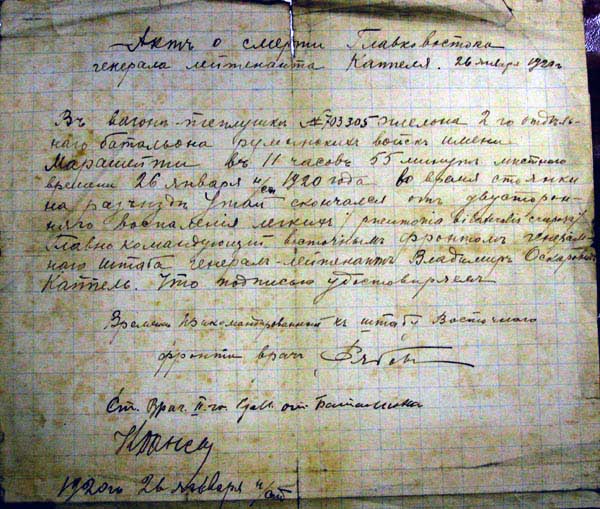 Актъ о смерти Главковостока
генерала лейтенанта Каппеля. 26 января 1920 г.
Въ вагонѣ-теплушкѣ № 703305 эшелона 2-го отдѣль-
наго баталіона румынскихъ войскъ имени
Марашети въ 11 часовъ 55 минутъ мѣстнаго
времени 26 января н/ст 1920 года во время стоянки
на разъѣздѣ Утай скончался отъ двусторон-
няго воспаленія легкихъ
Главнокомандующій восточнымъ фронтомъ генераль-
наго штаба генералъ-лейтенантъ Владиміръ Оскаровичъ
Каппель. Что подписью удостовѣряемъ
Времен. прикомандированный къ штабу Восточнаго
фронта врачъ
Ст. врач. II-го Рум. от. Баталиона
1920 го 26 января н/ст